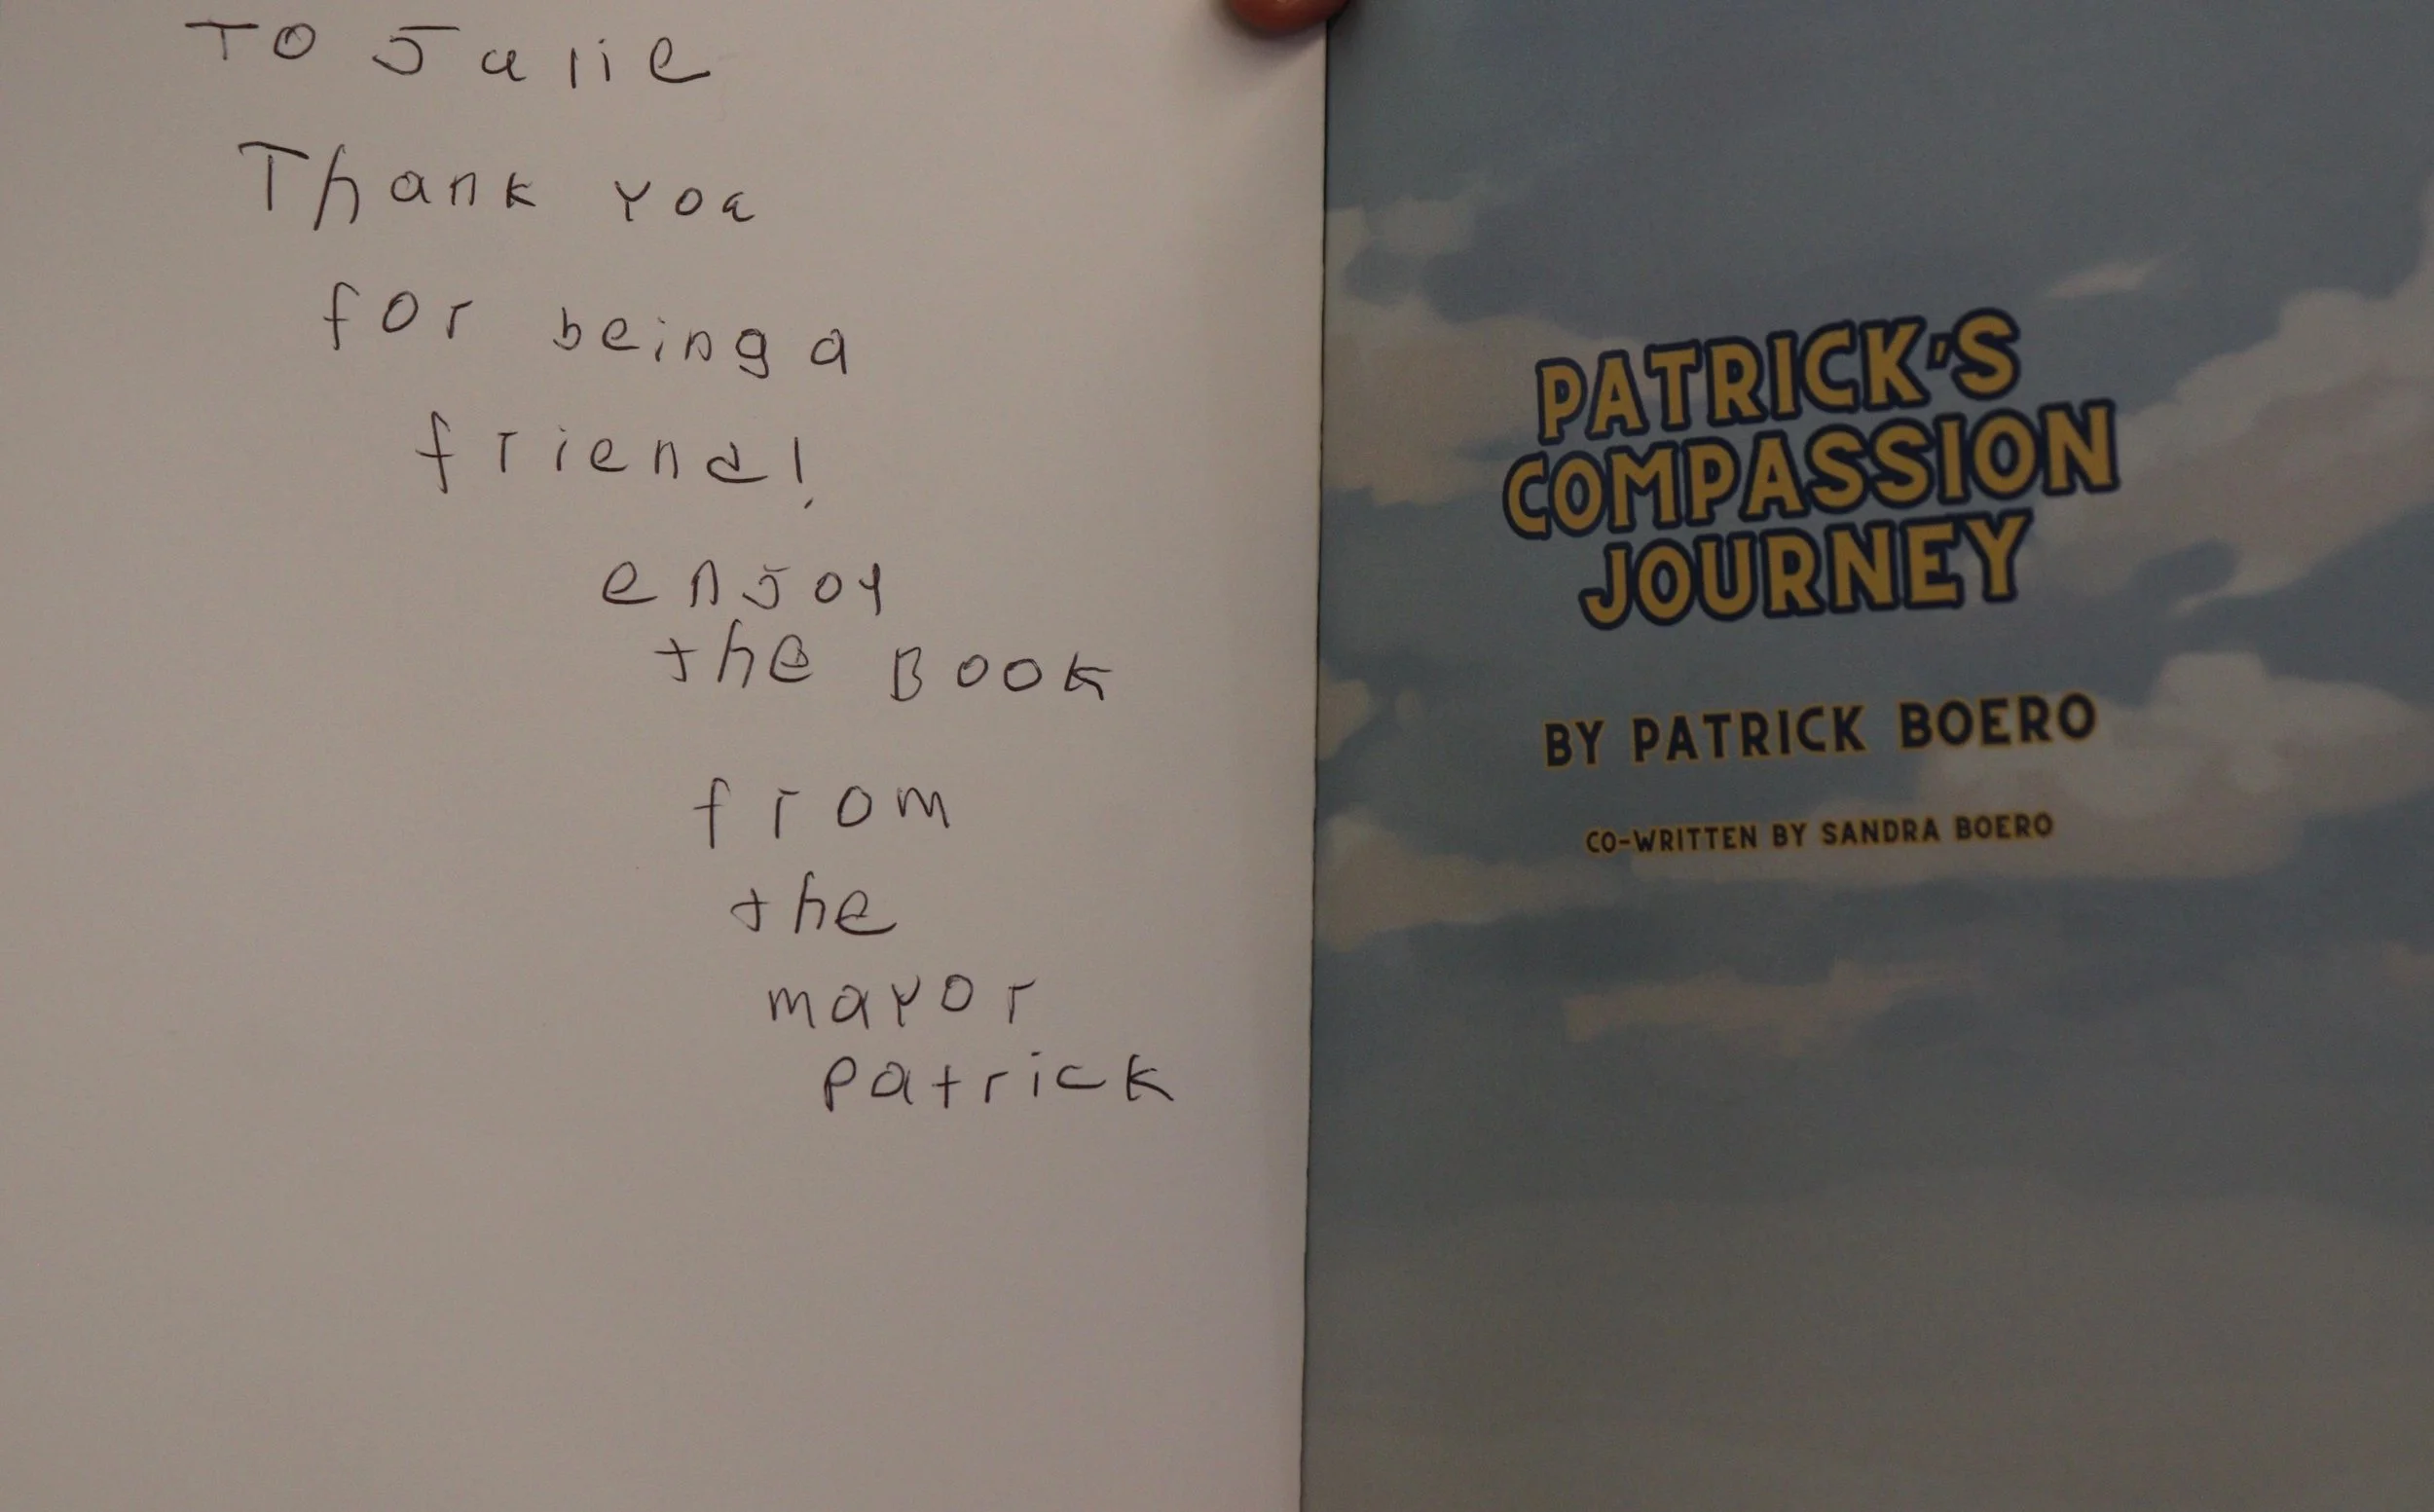 To Julie
Thank you
for being a
friend!
enjoy
the Book
from
the
mayor
Patrick
PATRICK'S
COMPASSION
JOURNEY
BY PATRICK BOERO
CO-WRITTEN BY SANDRA BOERO